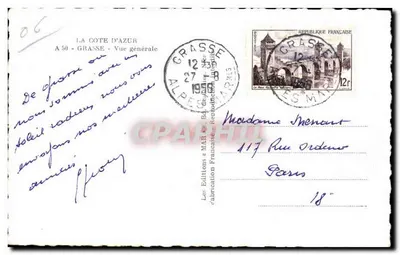 06
LA COTE D'AZUR
A 50 - GRASSE - Vue générale
De Grasse où
nous sommes avec un
soleil radieux nous vous
envoyons nos meilleures
amitiés
GRASSE
12 H 30
27 - 8
1956
ALPES MARMES
REPUBLIQUE FRANÇAISE
12F
GRASSE
Les Editions "MAR"
Fabrication Française
Madame Menart
117 Rue Ordener
Paris
18e